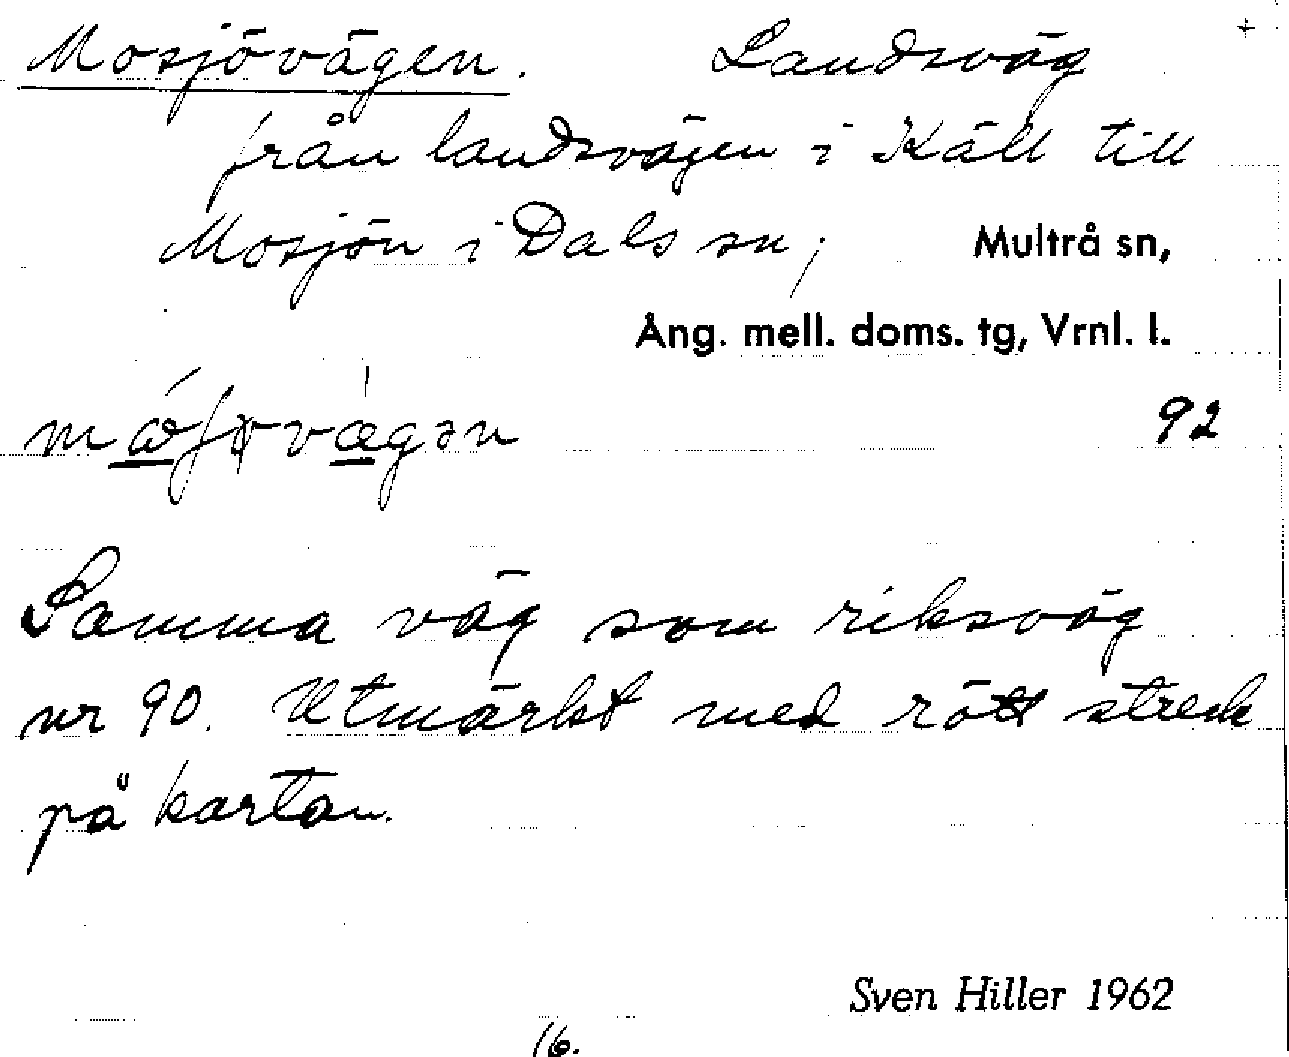 Mosjövägen. Landsväg +
från landsvägen i Käll till
Mosjön i Dals sn;
Multrå sn,
Ång. mell. doms. tg, Vrnl. l.
92
Samma väg som riksväg
nr 90. Utmärkt med rött streck
på kartan.
Sven Hiller 1962
16.